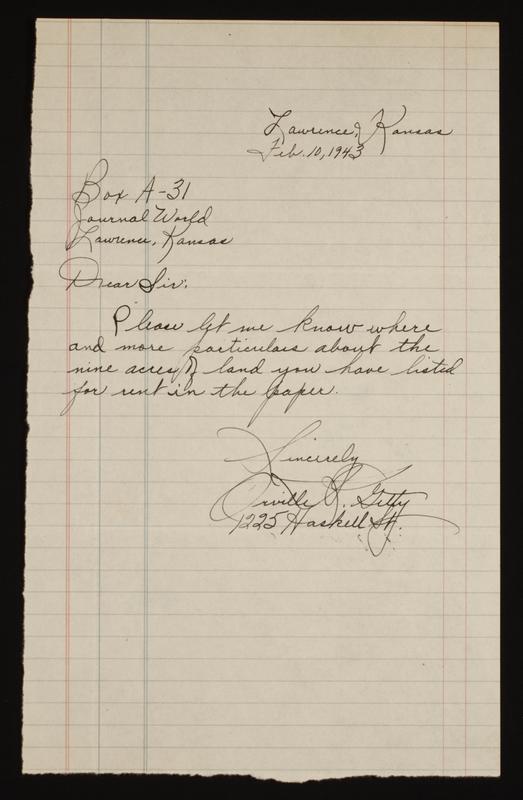 Lawrence, Kansas
Feb. 10, 1943
Box A-31
Journal World
Lawrence, Kansas
Dear Sir:
Please let me know where
and more particulars about the
nine acres of land you have listed
for rent in the paper.
Sincerely
Orville R. Getty
1225 Haskell St.